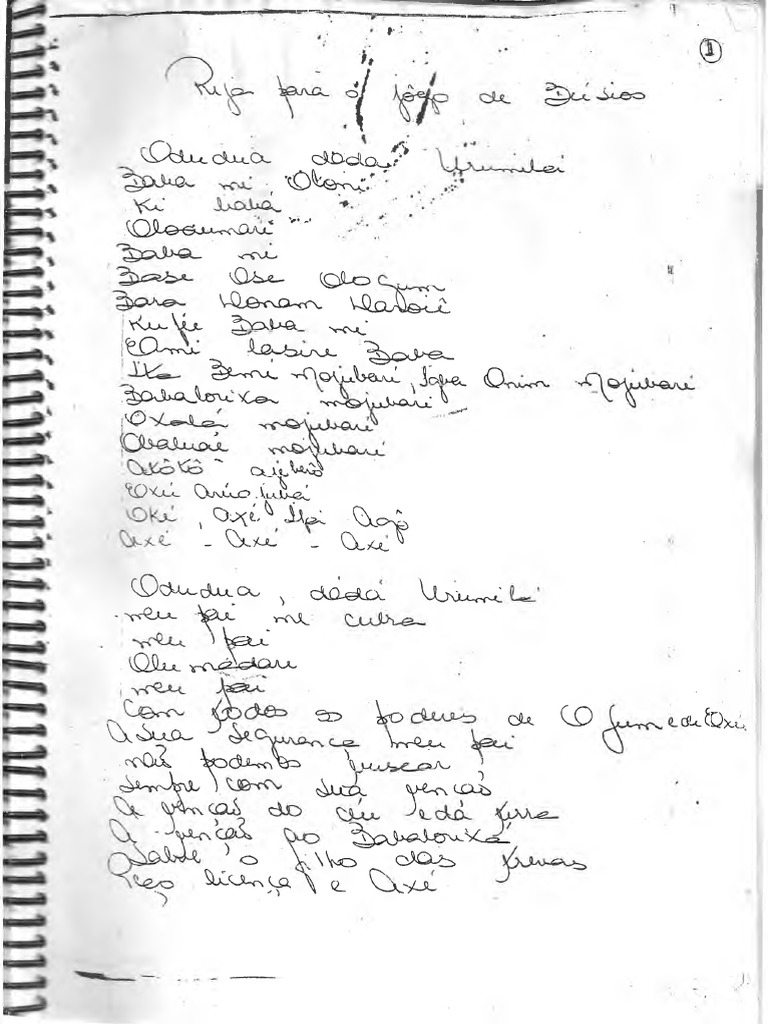 1
Reja para o jôgo de Búsios
Odudua dada Urumilá
Baba mi, Otoni
Ki babá
Olosumaré
Baba mi
Base Ose Ologum
Bara Lonam Laroiê
Kufée Baba mi
Eami lasire Baba
Ika Bemi Mojubaré, Iaba Onim Mojubaré
Babalorixa mojubaré
Oxalá mojubaré
Obaluaé mojubaré
Akôkô
Exú
Oké, Axé Ilpi Agô
Axé - Axé - Axé
Odudua, dadá Urumilá
meu pai me cubra
meu pai
Olumadare
meu pai
Com todos os poderes de Ogum e de Exú
A sua segurança meu pai
nós podemos buscar
sempre com sua vença
A vença do céu e dá terra
A vença ao Babalorixá
Salve o filho das trevas
Peço licença e Axé